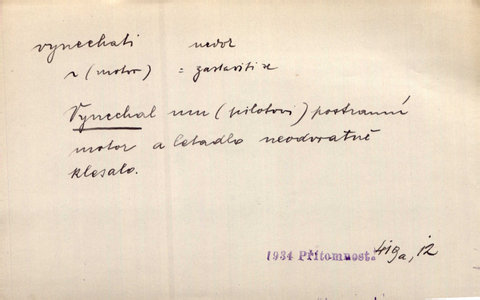 vynechati nedok
v (motor) = zastaviti se
Vynechal mu (pilotovi) postranní
motor a letadlo neodvratně
klesalo.
1934 Přítomnost. 419a, 12